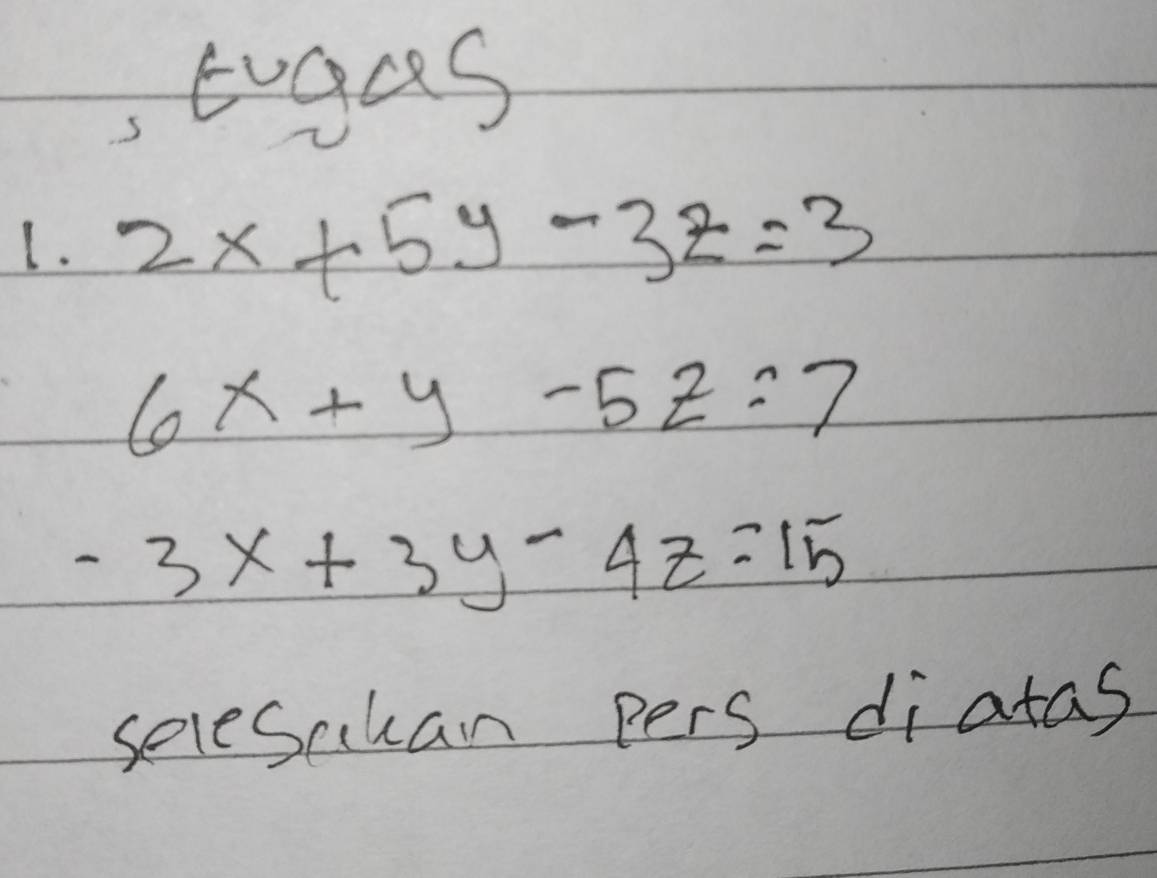 tugas
1. 2x + 5y - 3z = 3
6x + y - 5z = 7
- 3x + 3y - 4z = 15
selesaikan Pers di atas